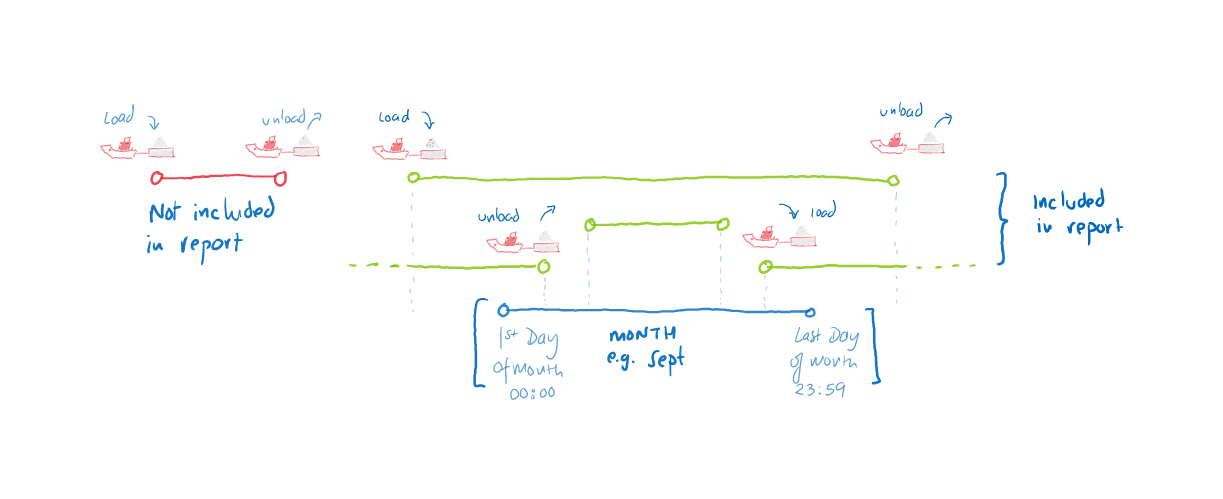 Load
unload
Load
unload
Not included
in report
unload
load
Included
in report
1st Day
of month
00:00
MONTH
e.g. Sept
Last Day
of month
23:59